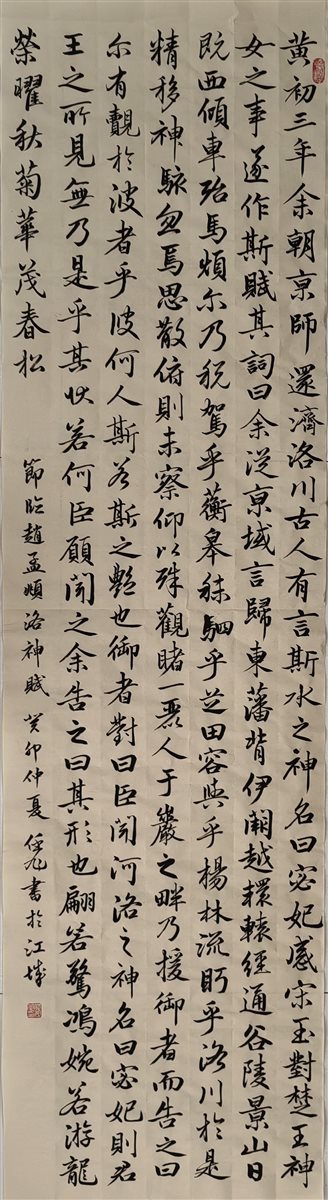 黄初三年余朝京師還濟洛川古人有言斯水之神名曰宓妃感宋玉對楚王神
女之事遂作斯賦其詞曰余從京域言歸東藩背伊闕越轘轅經通谷陵景山日
既西傾車殆馬煩尔乃税駕乎蘅皋秣駟乎芝田容與乎楊林流眄乎洛川於是
精移神駭忽焉思散俯則未察仰以殊觀睹一麗人于巖之畔乃援御者而告之曰
尔有覿於彼者乎彼何人斯若斯之艷也御者對曰臣聞河洛之神名曰宓妃則君
王之所見無乃是乎其狀若何臣願聞之余告之曰其形也翩若驚鴻婉若游龍
榮曜秋菊華茂春松
節临趙孟頫洛神賦 癸卯仲夏 書於江城